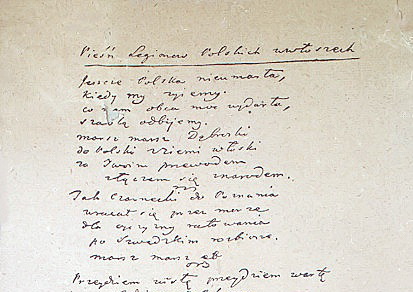 Pieśń Legionow Polskich wewłoszech
Jeszcze Polska nieumarła,
kiedy my żyiemy.
co nam obca moc wydarła,
szablą odbijemy.
marsz marsz Dąbroski
do Polski zziemi włoski
za Twoim przewodem
złączem się znarodem.
Jak Czarnecki do Poznania
wracał się przez morze
dla oyczyzny ratowania
po Szwedzkim rozbiorze.
marsz marsz etc
Przeydziem wisłę przeydziem wartę